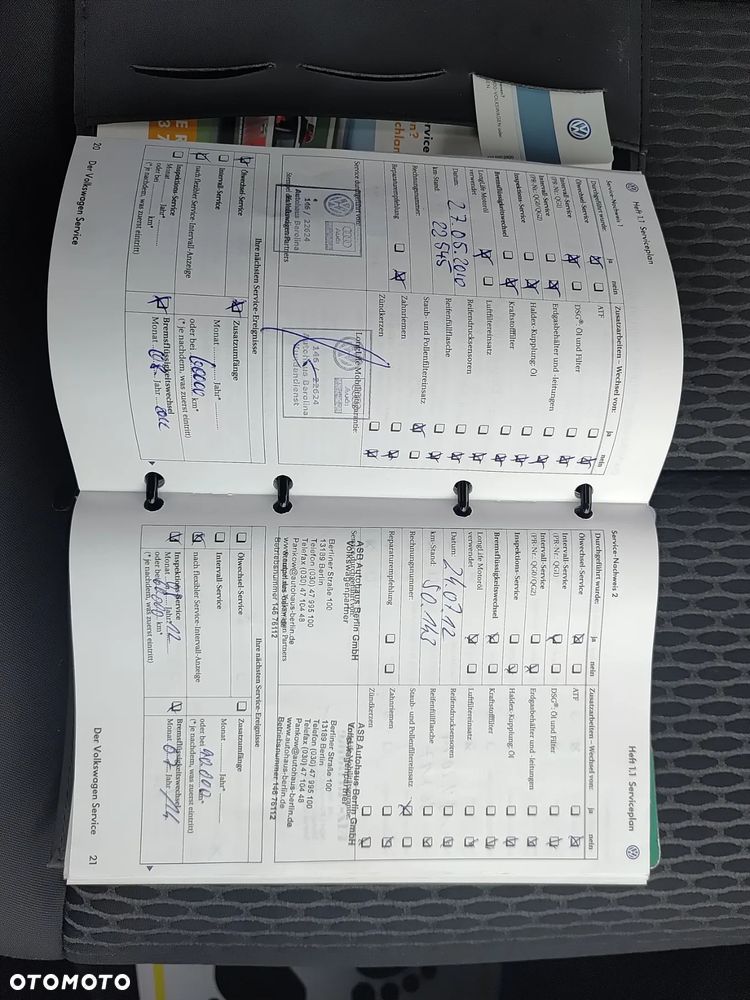 Heft 1.1 Serviceplan
Service-Nachweis 1
Durchgeführt wurde:
ja
nein
Ölwechsel-Service
Intervall-Service
(PR-Nr. QG1)
Intervall-Service
(PR-Nr. QG0/QG2)
Inspektions-Service
Bremsflüssigkeitswechsel
LongLife Motoröl
verwendet
Datum: 27.05.2010
km-Stand: 28945
Rechnungsnummer:
Reparaturempfehlung
Zusatzarbeiten – Wechsel von:
ja
nein
ATF
DSG®: Öl und Filter
Erdgasbehälter und -leitungen
Haldex-Kupplung: Öl
Kraftstofffilter
Luftfiltereinsatz
Reifendrucksensoren
Reifenfüllflasche
Staub- und Pollenfiltereinsatz
Zahnriemen
Zündkerzen
Service durchgeführt von:
Audi
146 / 22624
Autohaus Barolina
LongLife Mobilitätsgarantie:
Audi
146 / 22624
Autohaus Barolina
Kundendienst
Ihre nächsten Service-Ereignisse
Ölwechsel-Service
Intervall-Service
nach flexibler Service-Intervall-Anzeige
Inspektions-Service
Monat ........ Jahr* ........
oder bei ........ km*
(* je nachdem, was zuerst eintritt)
Zusatzumfänge
Monat ........ Jahr* ........
oder bei 60000 km*
(* je nachdem, was zuerst eintritt)
Bremsflüssigkeitswechsel
Monat Jahr
20
Der Volkswagen Service
Heft 1.1 Serviceplan
Service-Nachweis 2
Durchgeführt wurde:
ja
nein
Ölwechsel-Service
Intervall-Service
(PR-Nr. QG1)
Intervall-Service
(PR-Nr. QG0/QG2)
Inspektions-Service
Bremsflüssigkeitswechsel
LongLife Motoröl
verwendet
Datum: 24.07.12
km-Stand: 50.143
Rechnungsnummer:
Reparaturempfehlung
Zusatzarbeiten – Wechsel von:
ja
nein
ATF
DSG®: Öl und Filter
Erdgasbehälter und -leitungen
Haldex-Kupplung: Öl
Kraftstofffilter
Luftfiltereinsatz
Reifendrucksensoren
Reifenfüllflasche
Staub- und Pollenfiltereinsatz
Zahnriemen
Zündkerzen
ASB Autohaus Berlin GmbH
Volkswagenpartner
Berliner Straße 100
13189 Berlin
Telefon (030) 47 995 100
Telefax (030) 47 104 48
Pankow@autohaus-berlin.de
Betriebsnummer 146 76112
ASB Autohaus Berlin GmbH
Volkswagenpartner
Berliner Straße 100
13189 Berlin
Telefon (030) 47 995 100
Telefax (030) 47 104 48
Pankow@autohaus-berlin.de
www.autohaus-berlin.de
Betriebsnummer 146 76112
Ihre nächsten Service-Ereignisse
Ölwechsel-Service
Intervall-Service
nach flexibler Service-Intervall-Anzeige
Inspektions-Service
Monat Jahr
oder bei km*
(* je nachdem, was zuerst eintritt)
Zusatzumfänge
Monat ........ Jahr* ........
oder bei 90.000 km*
(* je nachdem, was zuerst eintritt)
Bremsflüssigkeitswechsel
Monat 07 Jahr 14
Der Volkswagen Service
21
OTOMOTO